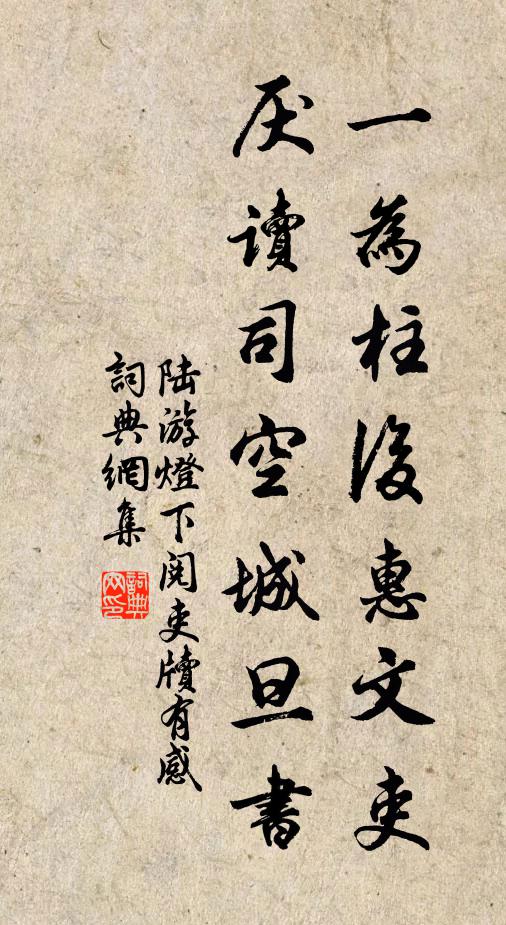 一為柱後惠文吏
厌讀司空城旦書
陆游燈下閱吏牘有感
詞典網集
詞典網印